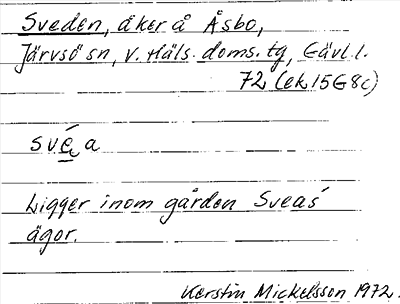 Sveden, åker å Åsbo,
Järvsö sn, v. Häls. doms. tg, Gävl. l.
72 (ek 15G8c)
svéa
Ligger inom gården Sveas'
ägor.
Kerstin Mickelsson 1972.